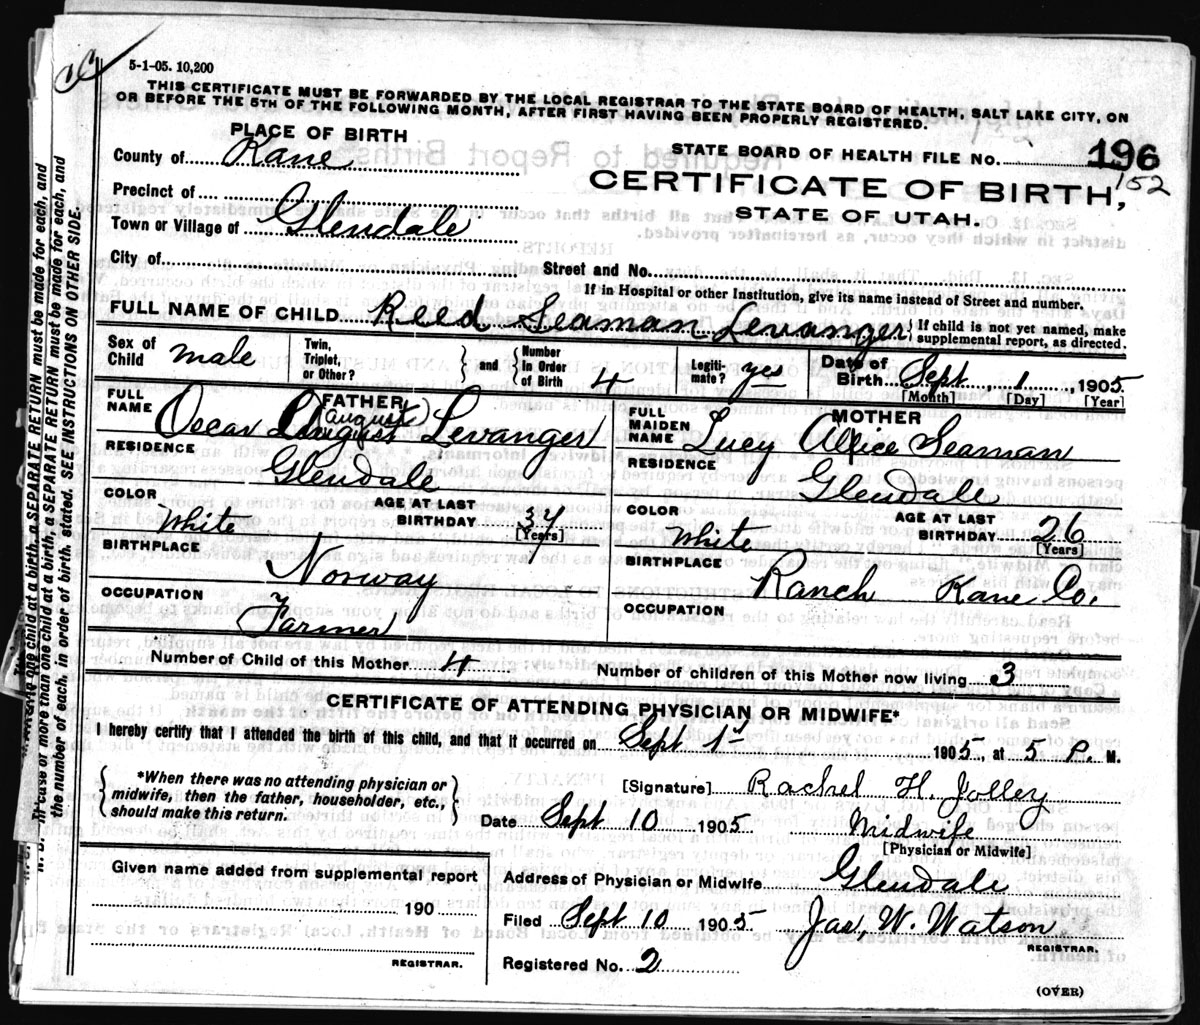 5-1-05. 10,200
THIS CERTIFICATE MUST BE FORWARDED BY THE LOCAL REGISTRAR TO THE STATE BOARD OF HEALTH, SALT LAKE CITY, ON
OR BEFORE THE 5TH OF THE FOLLOWING MONTH, AFTER FIRST HAVING BEEN PROPERLY REGISTERED.
PLACE OF BIRTH
County of Kane
STATE BOARD OF HEALTH FILE No. 196
152
CERTIFICATE OF BIRTH,
STATE OF UTAH.
Precinct of
Town or Village of Glendale
City of
Street and No.
If in Hospital or other Institution, give its name instead of Street and number.
FULL NAME OF CHILD Reed Seaman Levanger
{ If child is not yet named, make
supplemental report, as directed.
Sex of Child male
Twin, Triplet, or Other?
} and {
Number in Order of Birth 4
Legiti- mate? yes
Date of Birth Sept, 1, 1905
[Month] [Day] [Year]
FATHER
FULL NAME Oscar August (August) Levanger
MOTHER
FULL MAIDEN NAME Lucy Allice Seaman
RESIDENCE Glendale
RESIDENCE Glendale
COLOR White
AGE AT LAST BIRTHDAY 37
[Years]
COLOR White
AGE AT LAST BIRTHDAY 26
[Years]
BIRTHPLACE Norway
BIRTHPLACE Ranch Kane Co.
OCCUPATION Farmer
OCCUPATION
Number of Child of this Mother 4
Number of children of this Mother now living 3
CERTIFICATE OF ATTENDING PHYSICIAN OR MIDWIFE*
I hereby certify that I attended the birth of this child, and that it occurred on Sept 1st 1905, at 5 P. M.
{ *When there was no attending physician or
midwife, then the father, householder, etc.,
should make this return. }
[Signature] Rachel H. Jolley
Date Sept 10 1905 Midwife
[Physician or Midwife]
Given name added from supplemental report
190
REGISTRAR.
Address of Physician or Midwife Glendale
Filed Sept 10 1905 Jas. W. Watson
REGISTRAR.
Registered No. 2
(OVER)
In case of more than one child at a birth, a SEPARATE RETURN must be made for each, and
the number of each, in order of birth, stated. SEE INSTRUCTIONS ON OTHER SIDE.